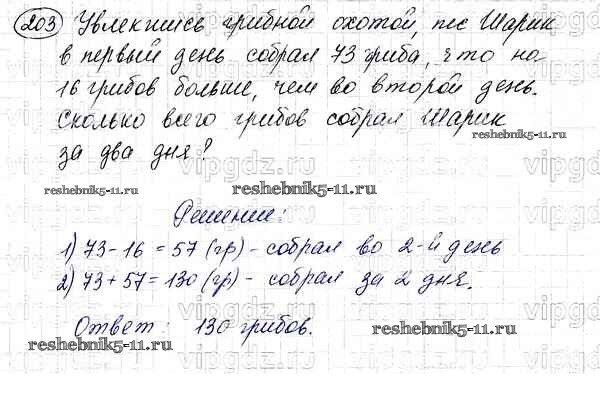 203 Увлекшись грибной охотой, пес Шарик
в первый день собрал 73 гриба, что на
16 грибов больше, чем во второй день.
Сколько всего грибов собрал Шарик
за два дня?
reshebnik5-11.ru
reshebnik5-11.ru
reshebnik5-11.ru
Решение:
1) 73-16 = 57 (гр) - собрал во 2-й день
2) 73+57=130 (гр) - собрал за 2 дня.
Ответ: 130 грибов.
reshebnik5-11.ru
reshebnik5-11.ru
vipgdz.ru